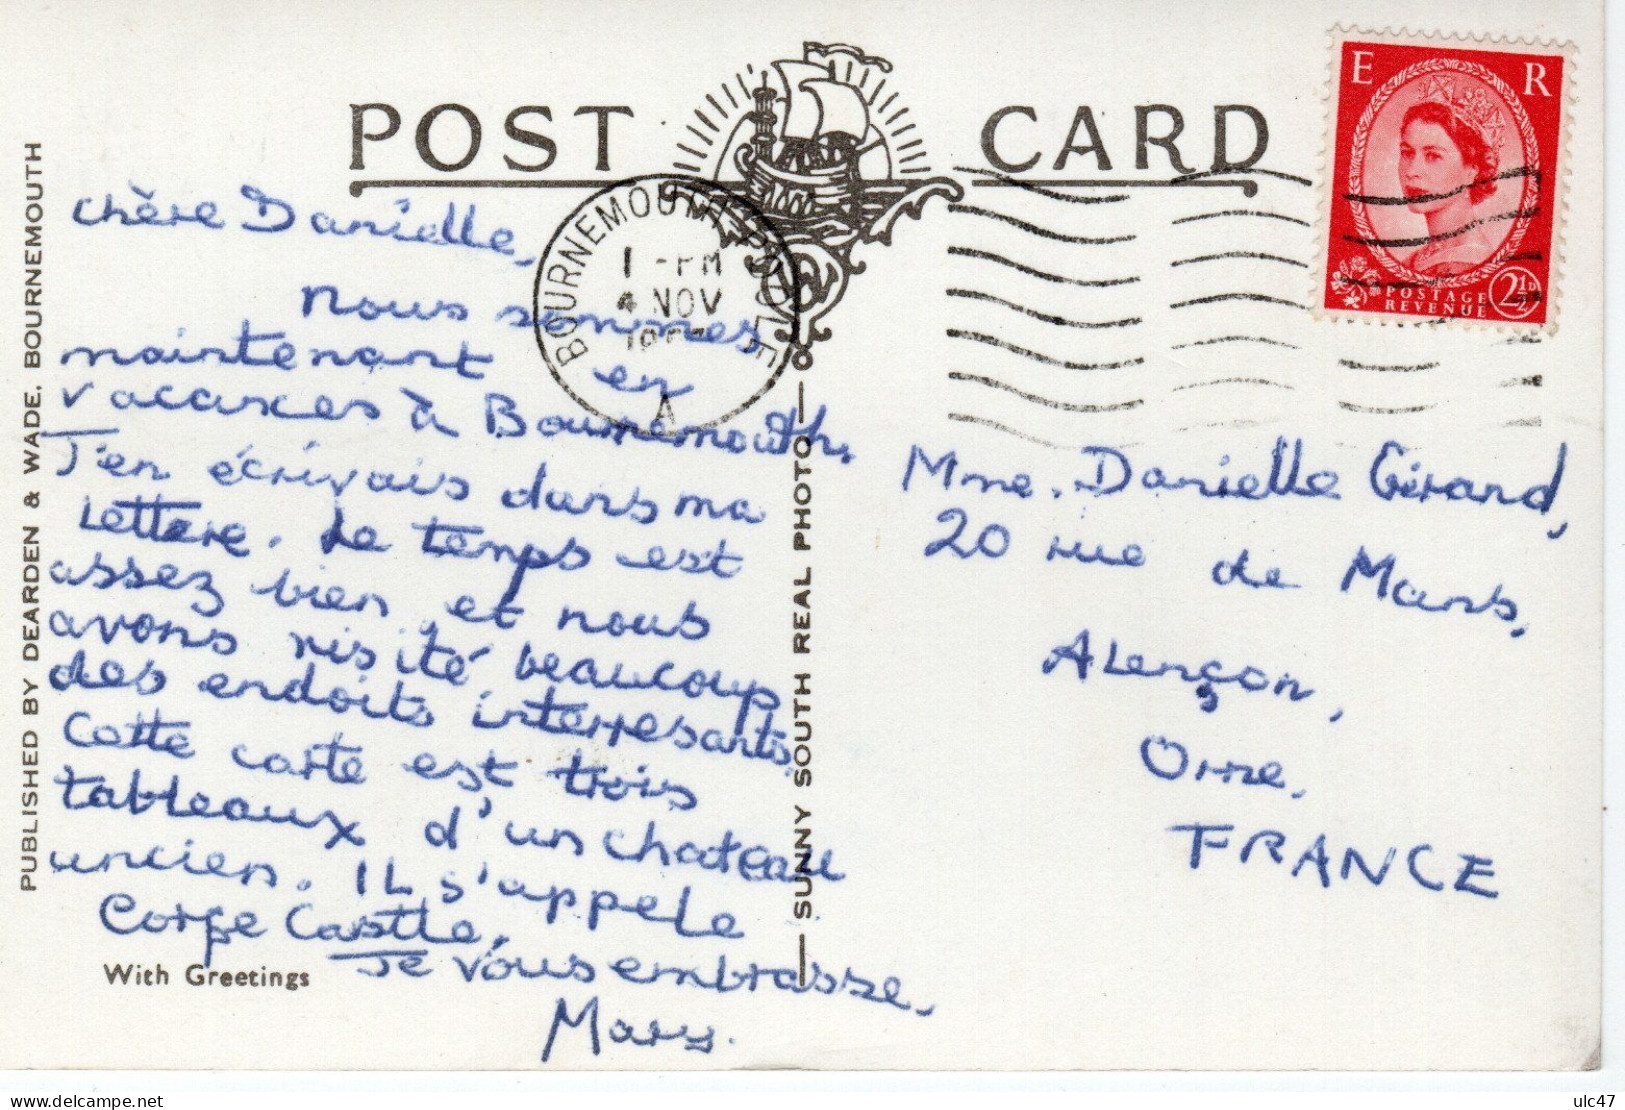 POST CARD
E R
POSTAGE
REVENUE
2½D
BOURNEMOUTH-POOLE
1 -PM
4 NOV
A
chère Danielle,
Nous sommes
maintenant en
vacances à Bournemouth.
J'en écrivais dans ma
Lettere. Le temps est
assez bien et nous
avons visité beaucoup
des endoits interresants.
Cette carte est trois
tableaux d'un chateau
ancien. IL s'appele
Corfe Castle.
Je vous embrasse,
Mary.
With Greetings
Mme. Danielle Gérard,
20 rue de Mans,
ALençon,
Orne,
FRANCE
PUBLISHED BY DEARDEN & WADE. BOURNEMOUTH
SUNNY SOUTH REAL PHOTO
delcampe.net
ulc47